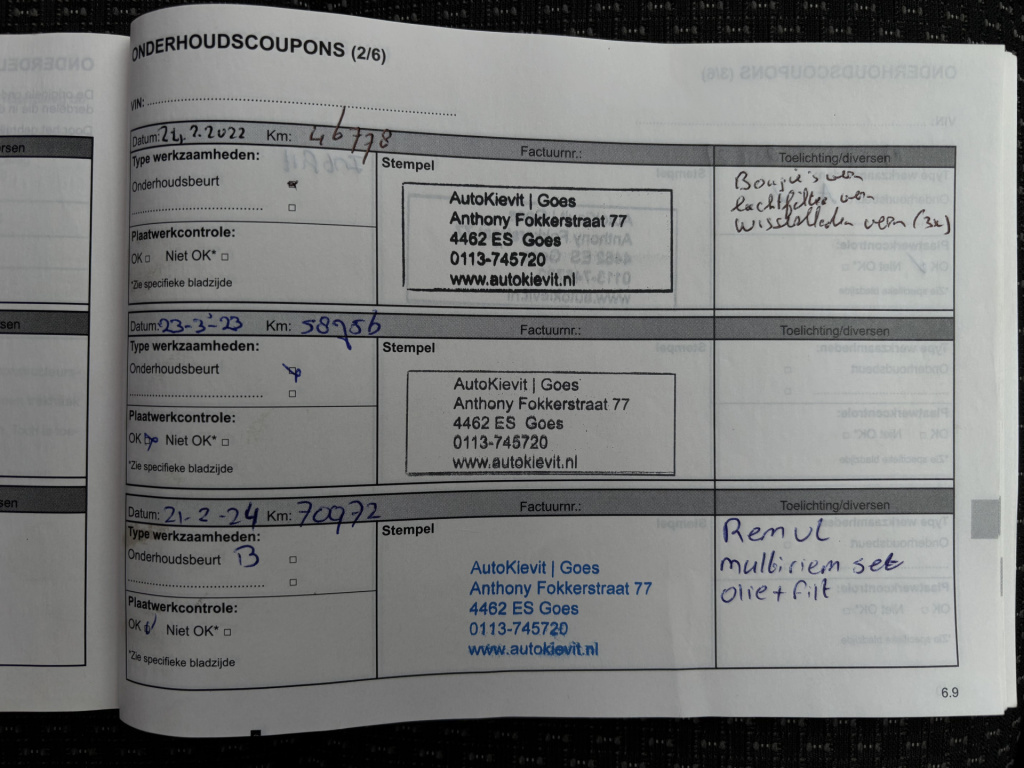 ONDERHOUDSCOUPONS (2/6)
VIN:
Datum: 24.2.2022 Km: 46778 Factuurnr.: Toelichting/diversen
Type werkzaamheden:
Onderhoudsbeurt
Plaatwerkcontrole:
OK Niet OK*
*Zie specifieke bladzijde
Stempel
AutoKievit | Goes
Anthony Fokkerstraat 77
4462 ES Goes
0113-745720
www.autokievit.nl
Bougie's vern
luchtfilter vern
wisserbladen vern (3x)
Datum: 23-3-23 Km: 58956 Factuurnr.: Toelichting/diversen
Type werkzaamheden:
Onderhoudsbeurt
Plaatwerkcontrole:
OK Niet OK*
*Zie specifieke bladzijde
Stempel
AutoKievit | Goes
Anthony Fokkerstraat 77
4462 ES Goes
0113-745720
www.autokievit.nl
Datum: 21-2-24 Km: 70972 Factuurnr.: Toelichting/diversen
Type werkzaamheden:
Onderhoudsbeurt B
Plaatwerkcontrole:
OK Niet OK*
*Zie specifieke bladzijde
Stempel
AutoKievit | Goes
Anthony Fokkerstraat 77
4462 ES Goes
0113-745720
www.autokievit.nl
Rem vl
multiriem set
olie + filt
6.9